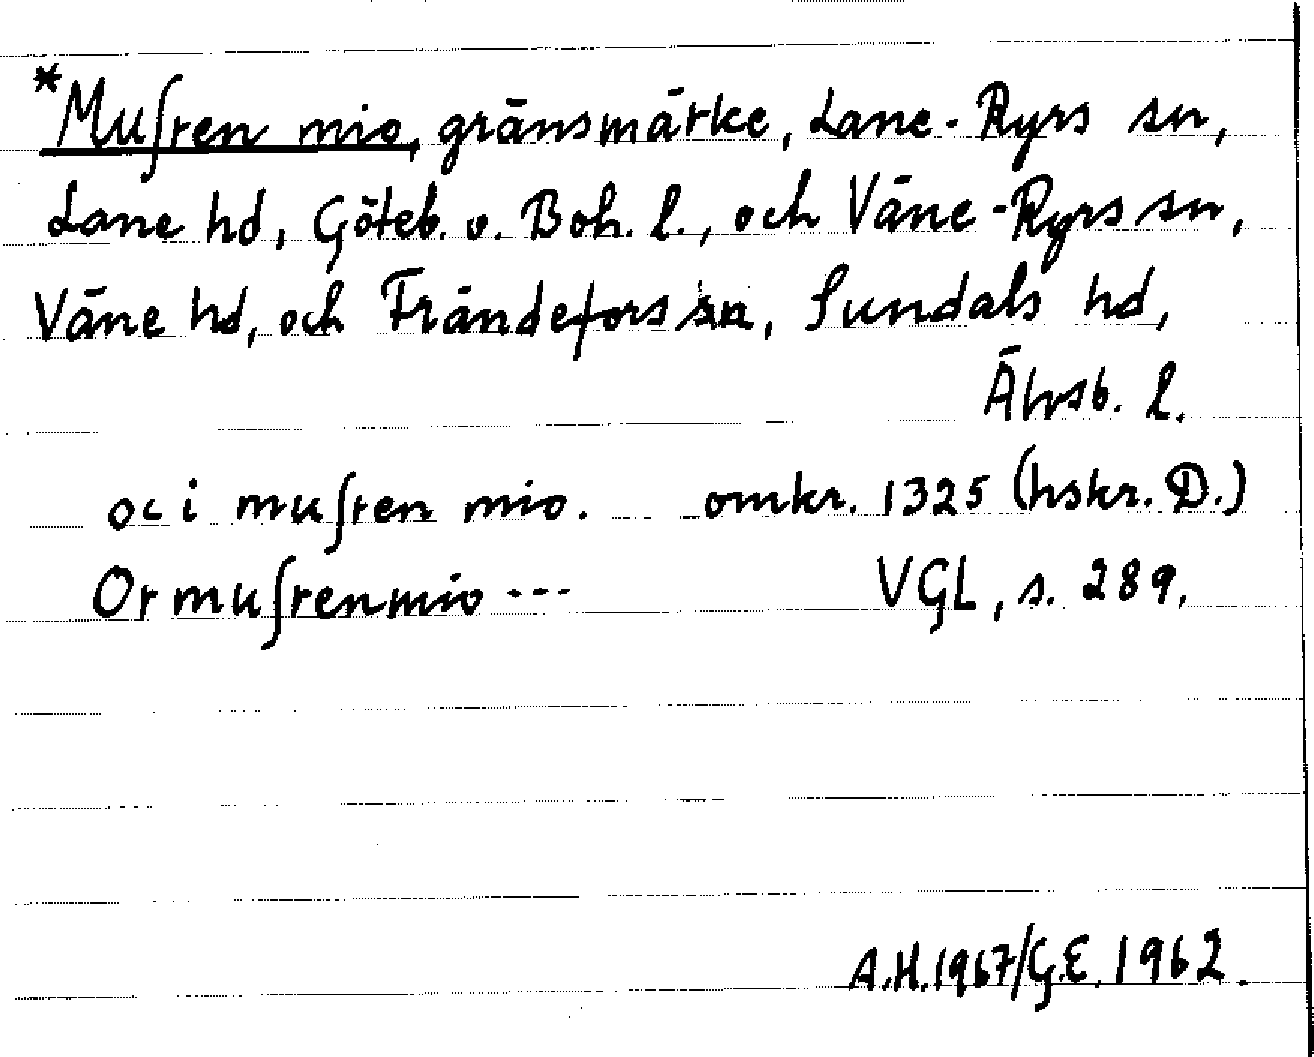 *Muſren mio, gränsmärke, Lane-Ryrs sn,
Lane hd, Göteb. o. Boh. l., och Väne-Ryrs sn,
Väne hd, och Frändefors sn, Sundals hd,
Älvsb. l.
oc i muſren mio. omkr. 1325 (hskr. D.)
Or muſrenmio --- VGL, s. 289.
A.H.1967/G.E. 1962.